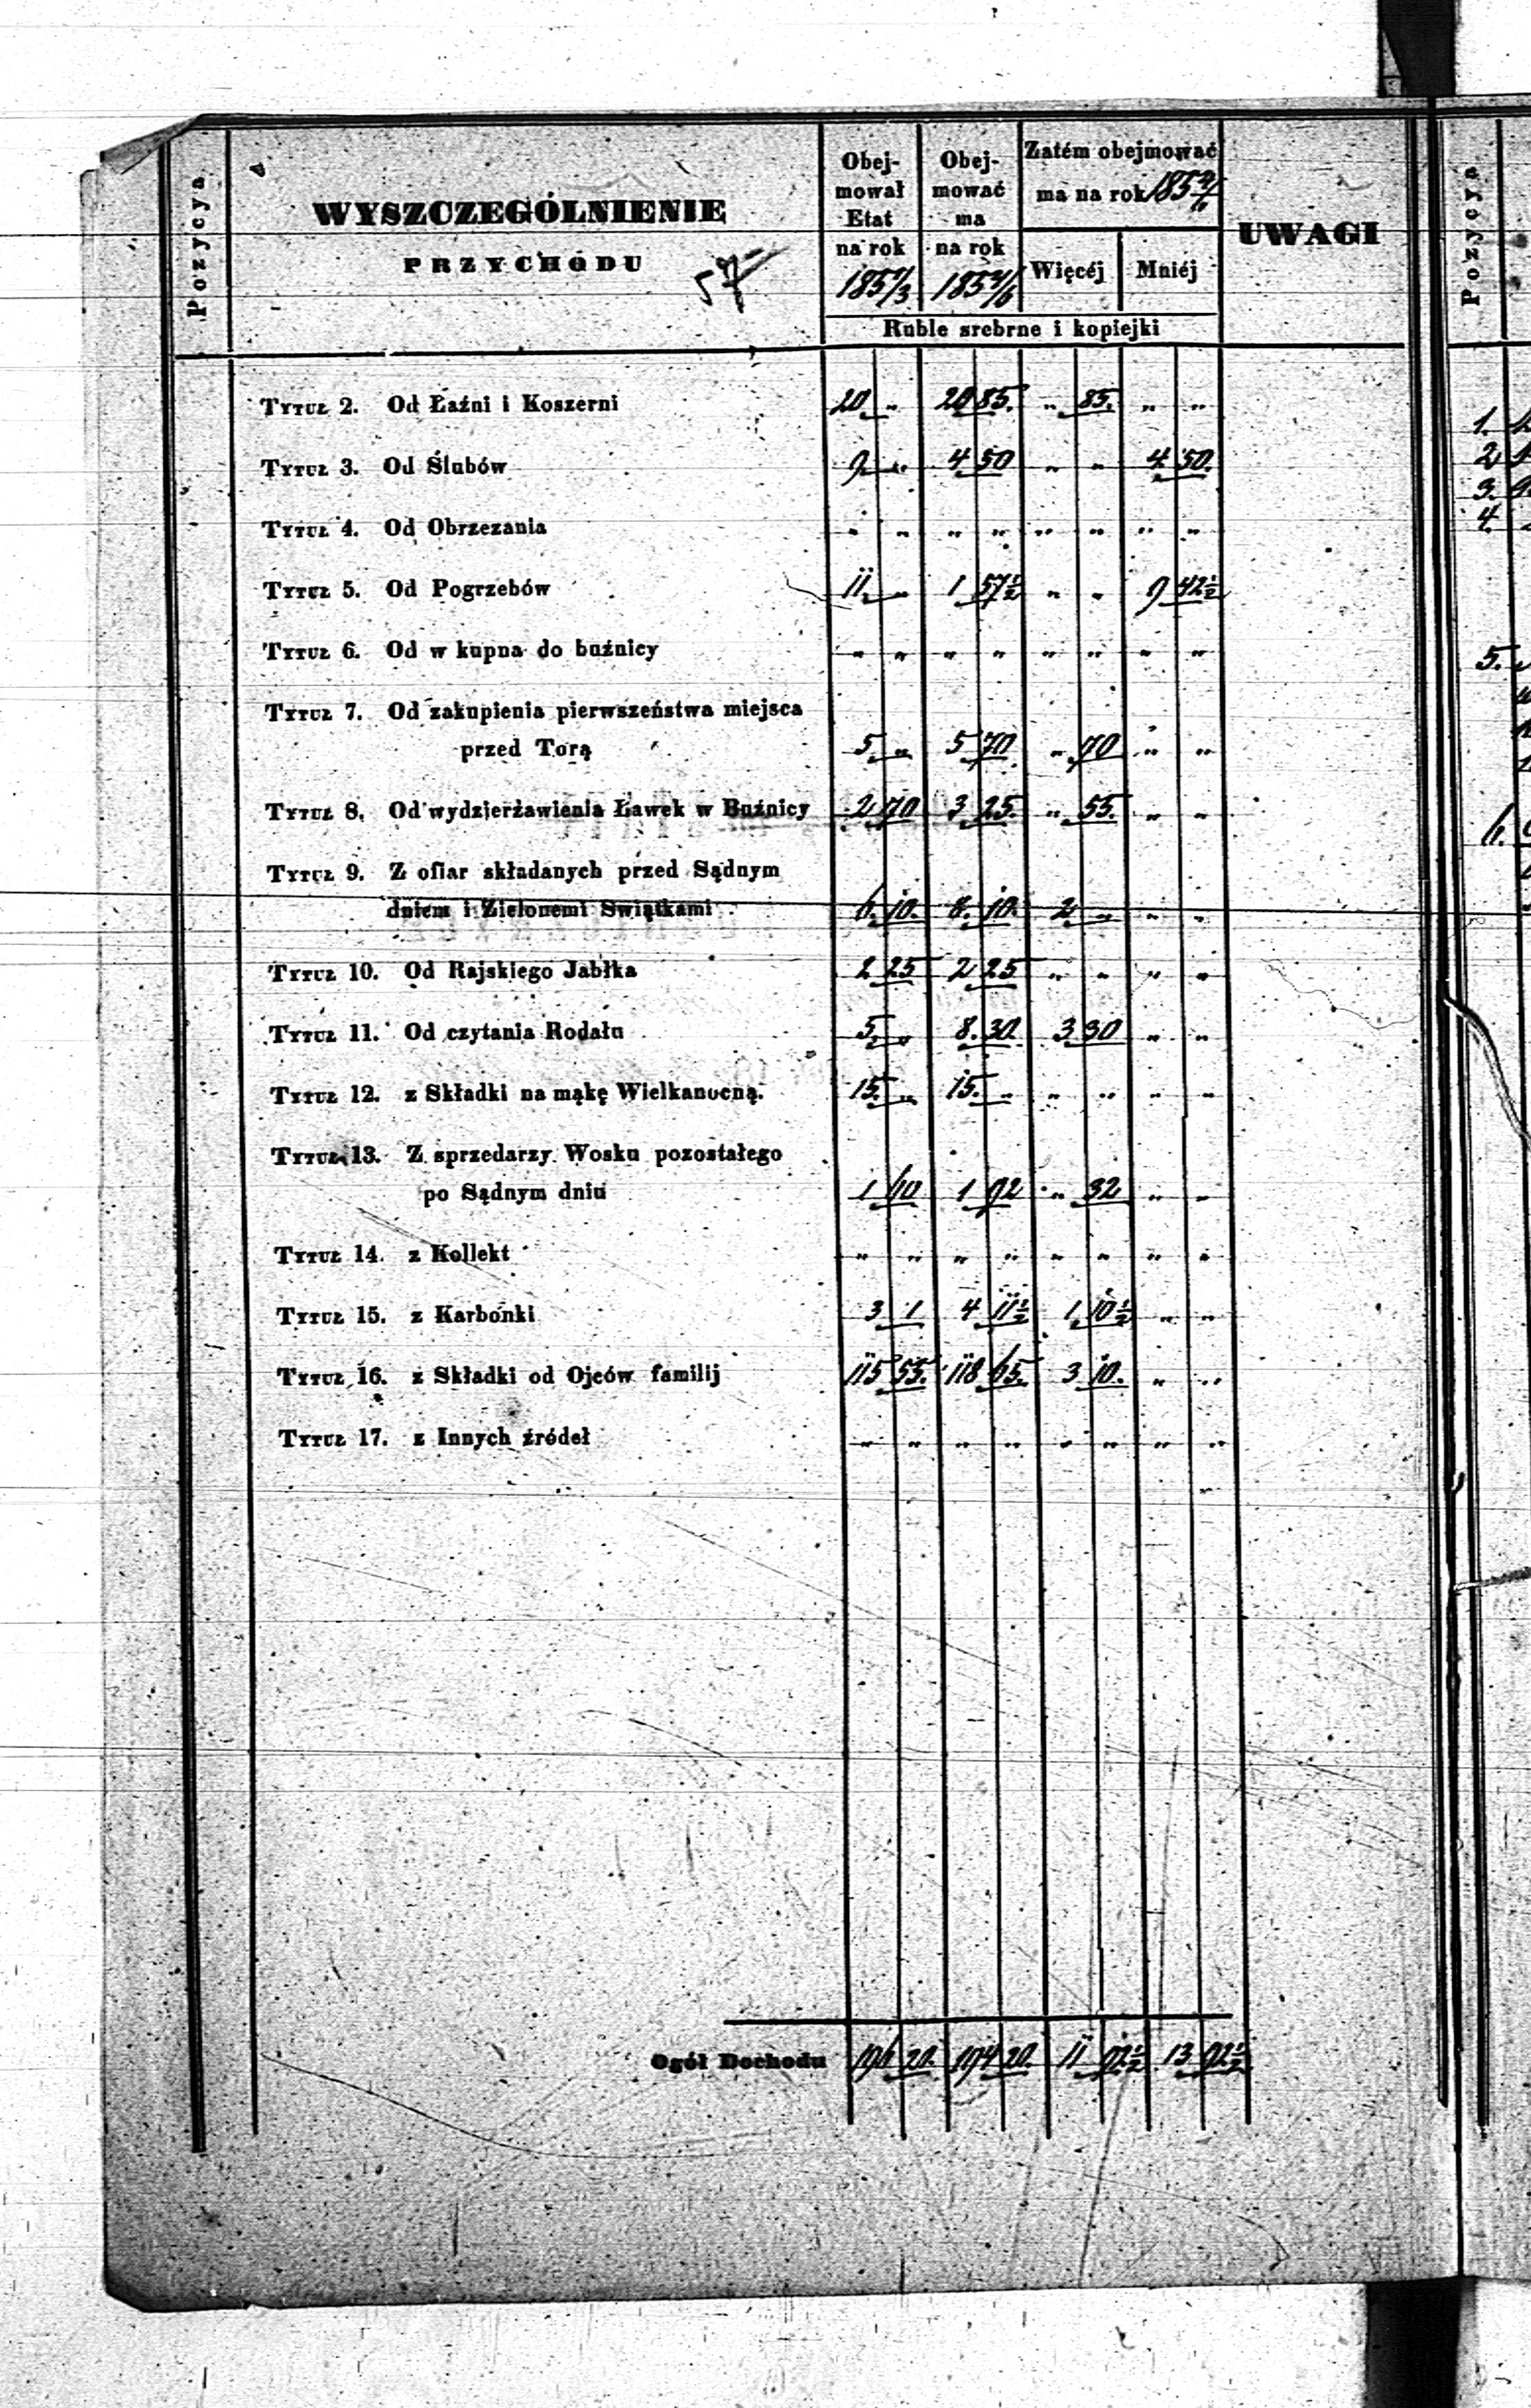 Pozycya
WYSZCZEGÓLNIENIE
PRZYCHODU
57
Obej-
mował
Etat
na rok
1851/3
Obej-
mować
ma
na rok
1854/6
Zatém obejmować
ma na rok 1854/6
Więcéj Mniéj
UWAGI
Ruble srebrne i kopiejki
Tytuł 2. Od Łaźni i Koszerni 20 „ 20 85. „ 85. „ „
Tytuł 3. Od Ślubów 9 „ 4 50 „ „ 4 50.
Tytuł 4. Od Obrzezania „ „ „ „ „ „ „ „
Tytuł 5. Od Pogrzebów 11. „ 1 57½ „ „ 9 42½
Tytuł 6. Od w kupna do buźnicy „ „ „ „ „ „ „ „
Tytuł 7. Od zakupienia pierwszeństwa miejsca
przed Torą 5. „ 5 70 „ 70 „ „
Tytuł 8. Od wydzierżawienia Ławek w Buźnicy 2 70 3 25. „ 55. „ „
Tytuł 9. Z ofiar składanych przed Sądnym
dniem i Zielonemi Swiątkami 6. 10. 8. 10. 2 „ „ „
Tytuł 10. Od Rajskiego Jabłka 2 25 2 25 „ „ „ „
Tytuł 11. Od czytania Rodału 5. „ 8. 30. 3 30 „ „
Tytuł 12. z Składki na mąkę Wielkanocną. 15. „ 15. „ „ „ „ „
Tytuł 13. Z sprzedarzy Wosku pozostałego
po Sądnym dniu 1 60 1 92 „ 32 „ „
Tytuł 14. z Kollekt „ „ „ „ „ „ „ „
Tytuł 15. z Karbonki 3 1 4 11½ 1 10½ „ „
Tytuł 16. z Składki od Ojców familij 115 55. 118 65. 3 10. „ „
Tytuł 17. z Innych źródeł „ „ „ „ „ „ „ „
Ogół Dochodu 196 20. 194 20. 11 92½ 13 92½
Pozycya
1.
2
3.
4.
5.
6.